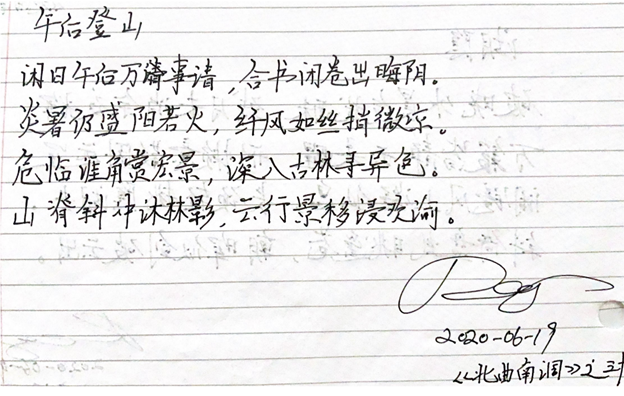 午后登山
闲日午后万籁事清,合书闭卷出晦阴。
炎署仍盛阳若火,纤风如丝捎微凉。
危临崖角赏宏景,深入古林寻异色。
山脊斜冲沐林影,云行景移浸欢渝。
2020-06-19
《北曲南润》之